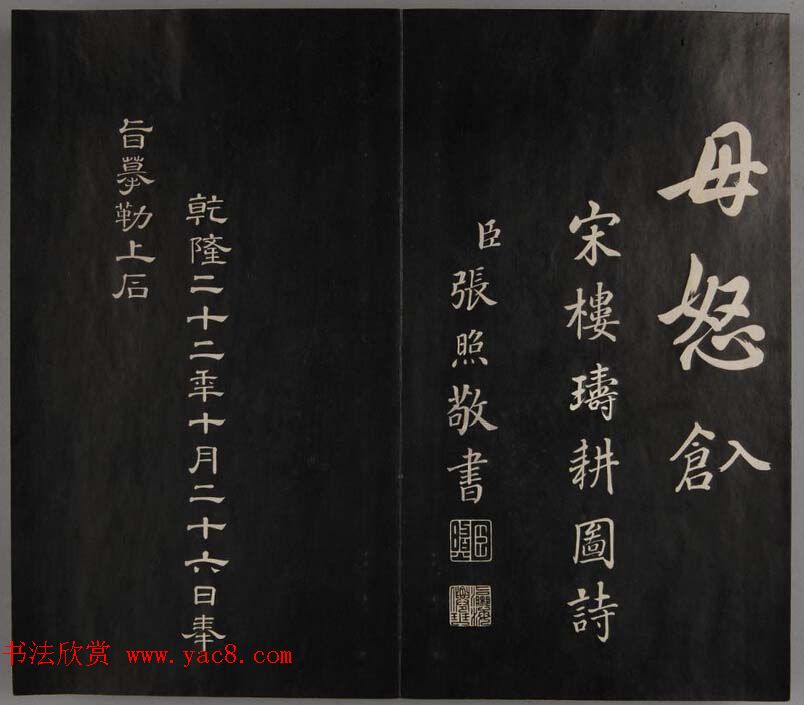 毋怒 入倉
宋樓璹耕圖詩
臣張照敬書
乾隆二十二年十月二十六日奉
旨摹勒上石
书法欣赏 www.yac8.com